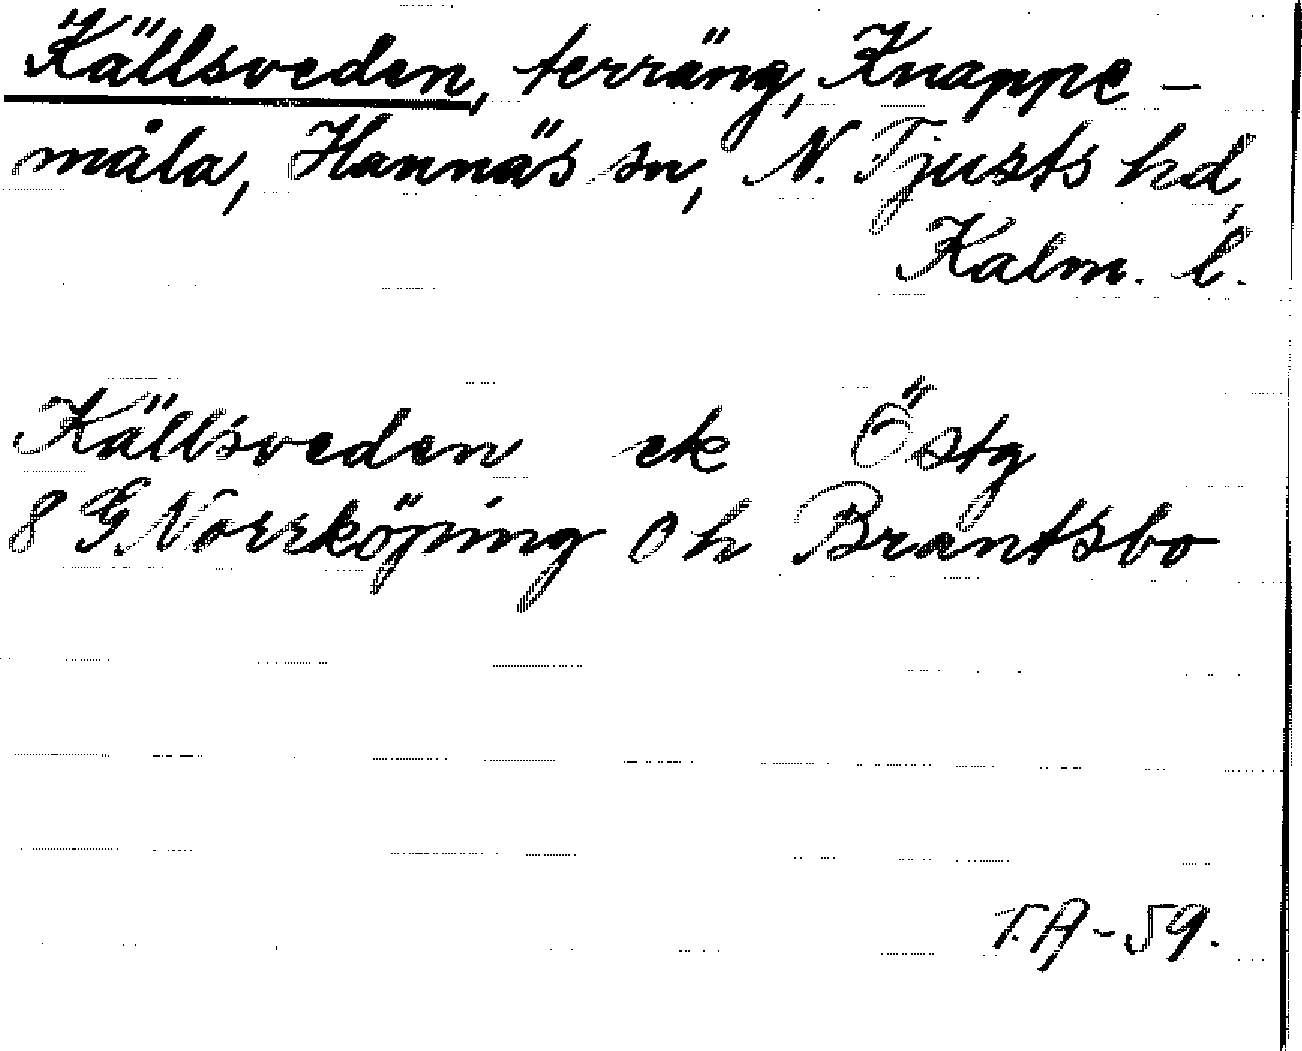 Källsveden, terräng, Knappe-
måla, Hannäs sn, N. Tjusts hd,
Kalm. l.
Källsveden ek Östg
8 G. Norrköping o h Brantsbo
T.A-59.